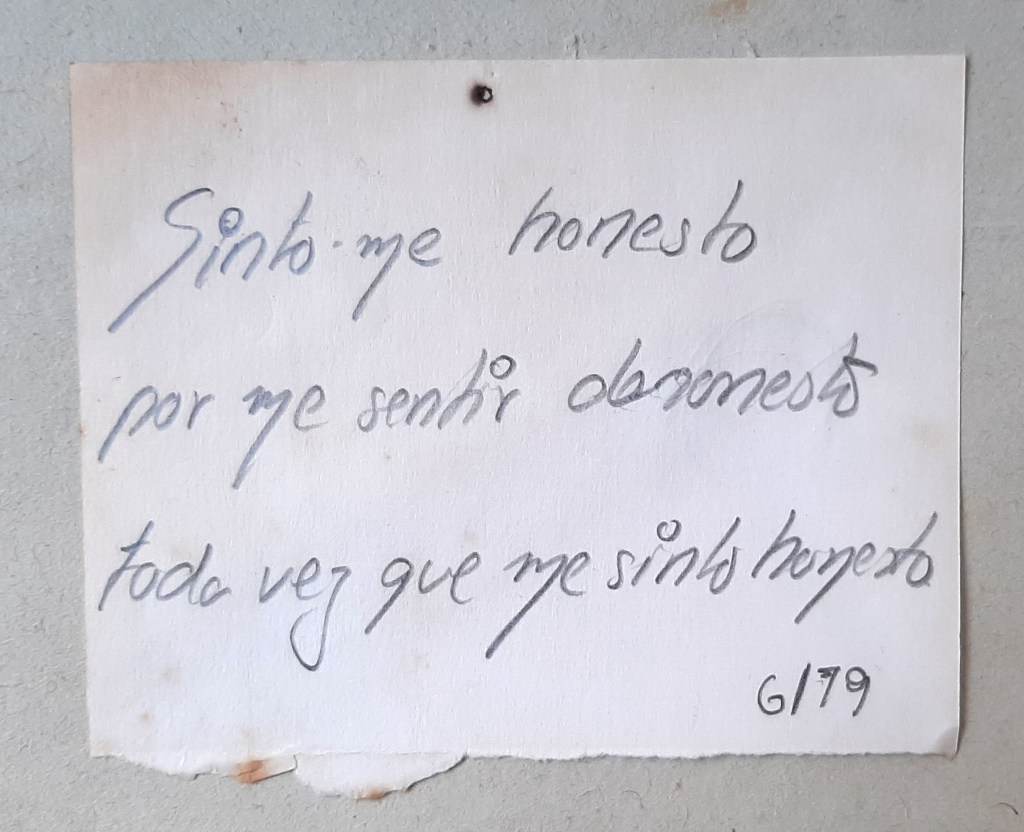 Sinto-me honesto
por me sentir desonesto
toda vez que me sinto honesto
6/79